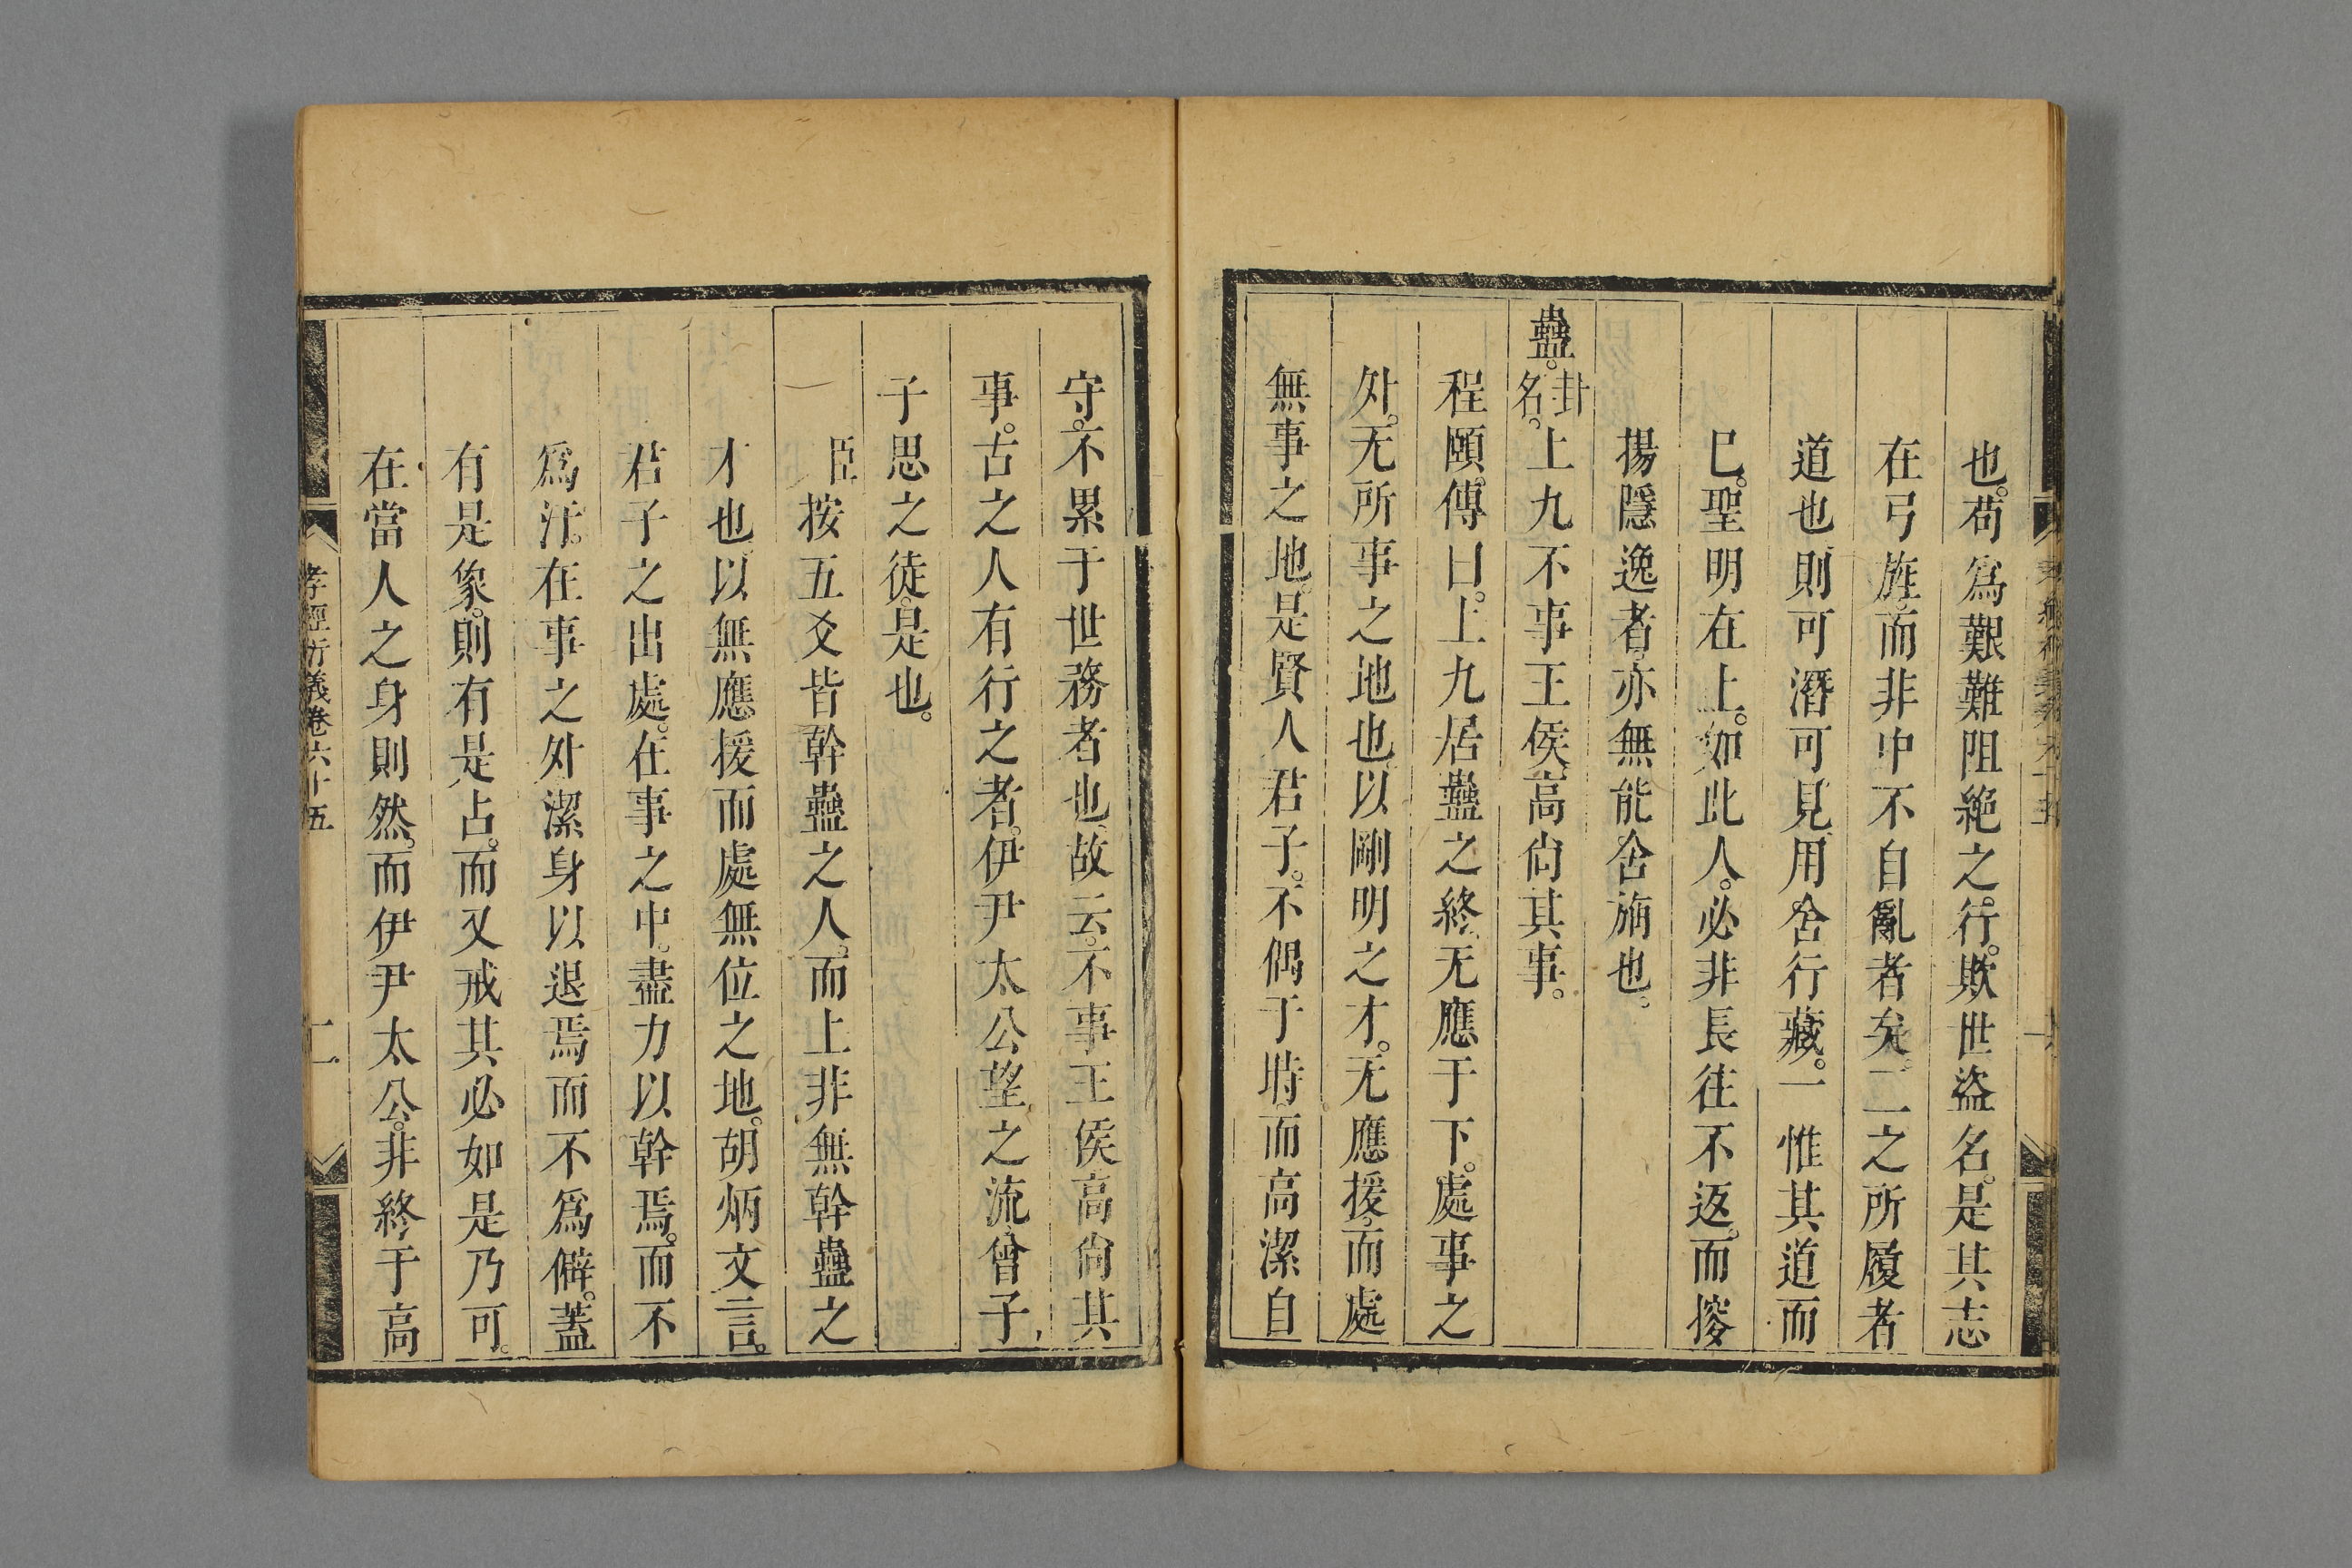 也。苟爲艱難阻絶之行。欺世盜名。是其志
在弓旌。而非中不自亂者矣。二之所履者
道也則可潛可見。用舍行藏。一惟其道而
巳。聖明在上。如此人。必非長往不返。而搜
揚隱逸者。亦無能舍旃也。
蠱。卦名。上九不事王侯。高尙其事。
程頤。傳曰。上九居蠱之終。无應于下。處事之
外。无所事之地也。以剛明之才。无應援。而處
無事之地。是賢人君子。不偶于時。而高潔自
守。不累于世務者也。故云。不事王侯高尙其
事。古之人有行之者。伊尹太公望之流。曾子
子思之徒。是也。
臣按五爻皆幹蠱之人。而上非無幹蠱之
才也。以無應援而處無位之地。胡炳文言。
君子之出處。在事之中。盡力以幹焉。而不
爲汙。在事之外。潔身以退焉而不爲僻。蓋
有是象。則有是占。而又戒其必如是乃可。
在當人之身則然。而伊尹太公。非終于高
孝經衍義卷六十五
二